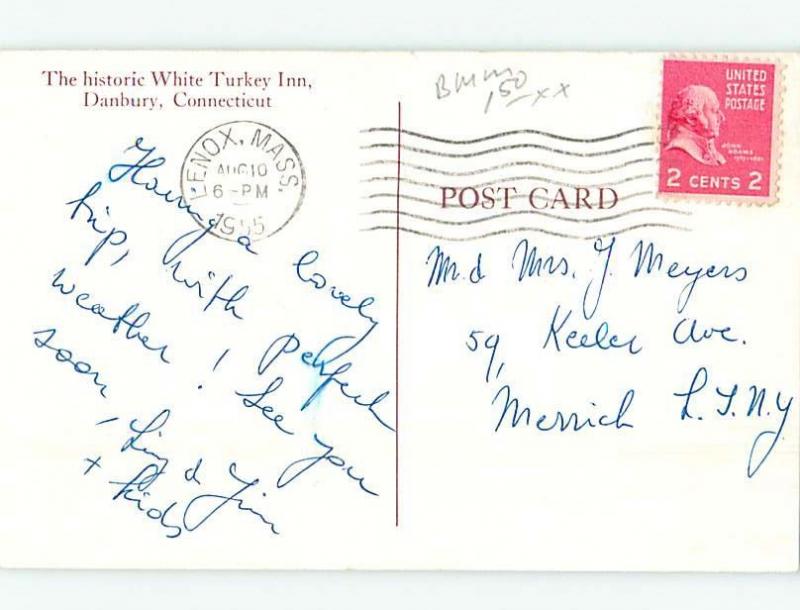 The historic White Turkey Inn,
Danbury, Connecticut
150
xx
LENOX, MASS.
AUG 10
6 - PM
1955
UNITED
STATES
POSTAGE
JOHN
ADAMS
2 CENTS 2
POST CARD
Having a lovely
trip, with perfect
weather! See you
soon,
- & Jim
+ kids
Mr. & Mrs. J. Meyers
59, Keeler Ave.
Merrick L.I.N.Y